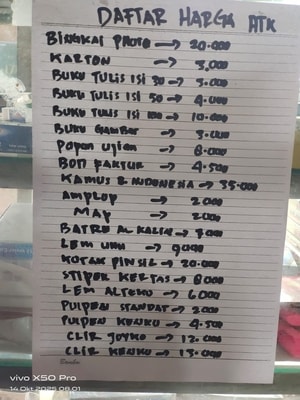 DAFTAR HARGA ATK
BINGKAI PHOTO → 20.000
KARTON → 3.000
BUKU TULIS ISI 30 → 3.000
BUKU TULIS ISI 50 → 4.000
BUKU TULIS ISI 100 → 10.000
BUKU GAMBAR → 3.000
PAPAN UJIAN → 8.000
BON FAKTUR → 4.500
KAMUS B. INDONESIA → 35.000
AMPLOP → 2000
MAP → 2000
BATRE ALKALIN → 7000
LEM UHU → 9000
KOTAK PINSIL → 20.000
STIPEK KERTAS → 8000
LEM ALTECO → 6000
PULPEN STANDAT → 2000
PULPEN KENKO → 4.500
CLIR JOYKO → 12.000
CLIR KENKO → 13.000
vivo X50 Pro
14 Okt 2025 08.01